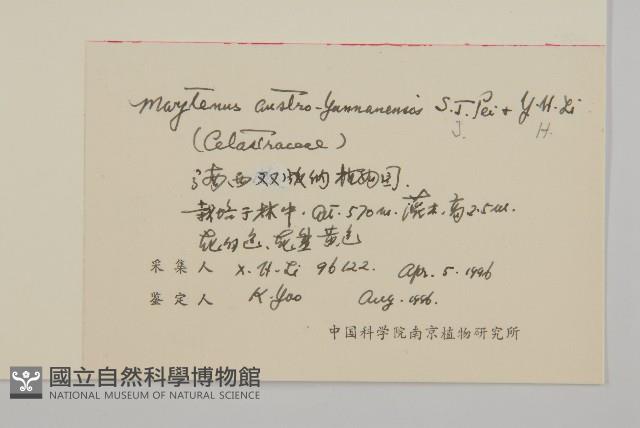 Maytenus austro-yunnanensis S.J.Pei + Y.H.Li
J. H.
(Celastraceae)
滇西双版纳植物园.
栽培于林中. alt. 570 m. 灌木, 高2.5m.
花白色、花盘黄色
采集人 X.H.Li 96122. Apr. 5. 1996
鉴定人 K.Yao Aug. 1996.
中国科学院南京植物研究所
國立自然科學博物館
NATIONAL MUSEUM OF NATURAL SCIENCE